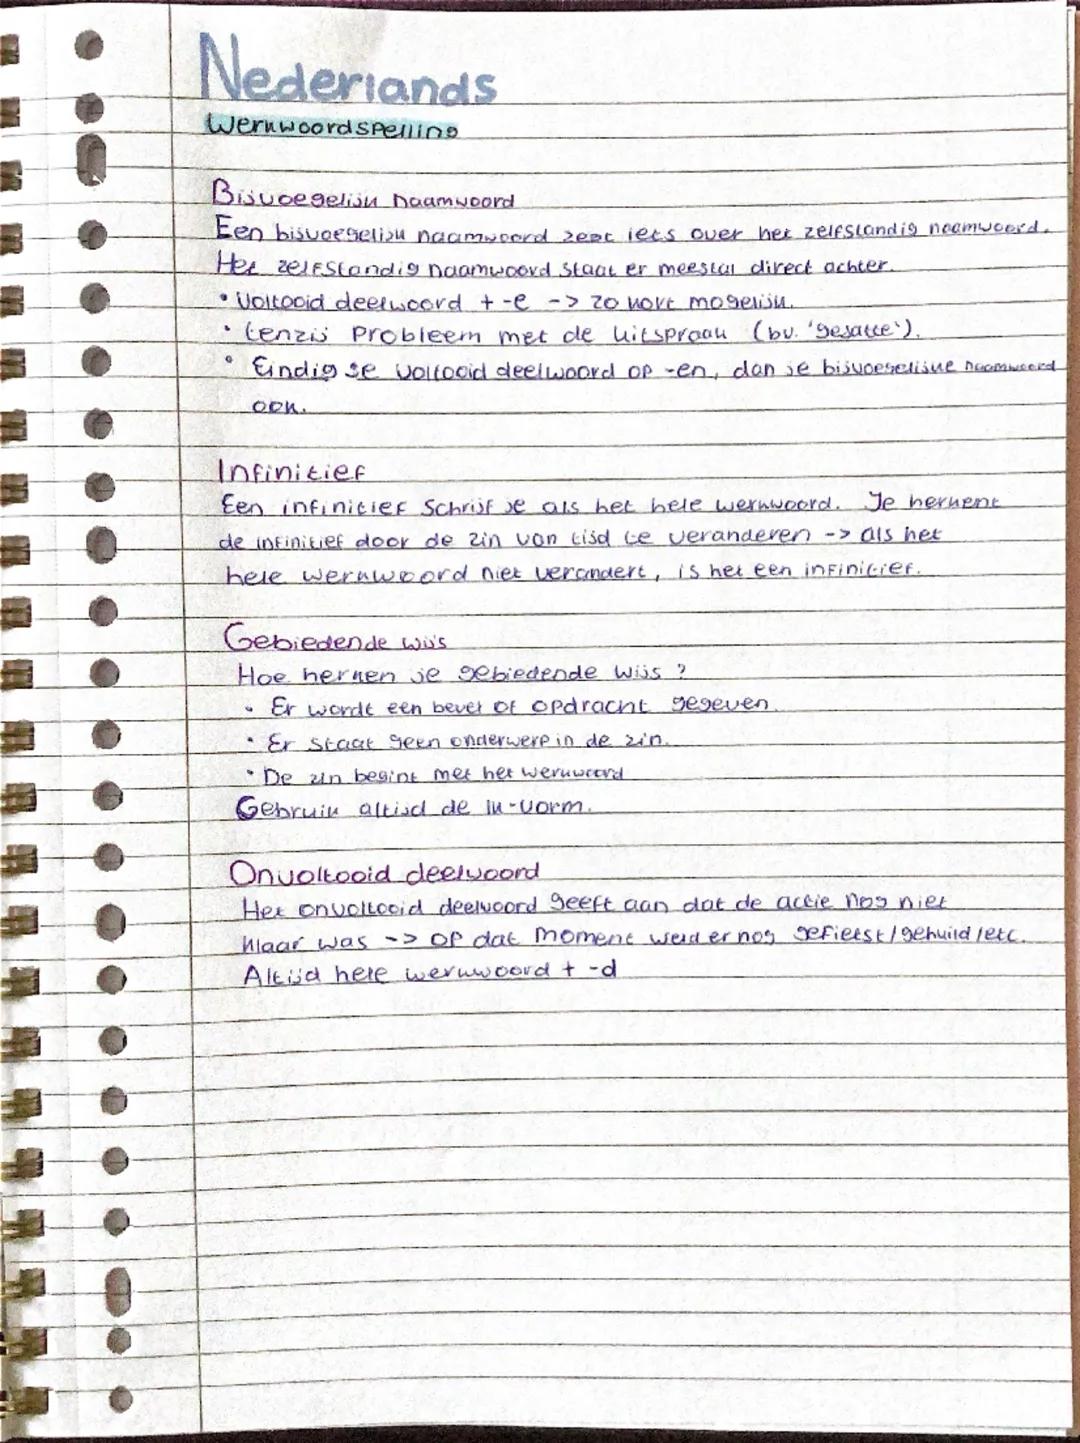 Nederlands
Werkwoordspelling
Bijvoegelijk naamwoord
Een bijvoegelijk naamwoord zegt iets over het zelfstandig naamwoord.
Het zelfstandig naamwoord staat er meestal direct achter.
• Voltooid deelwoord + -e -> zo kort mogelijk.
• tenzij probleem met de uitspraak (bv. 'gejatte').
• Eindig je voltooid deelwoord op -en, dan je bijvoegelijke naamwoord
ook.
Infinitief
Een infinitief schrijf je als het hele werkwoord. Je herkent
de infinitief door de zin van tijd te veranderen -> als het
hele werkwoord niet verandert, is het een infinitief.
Gebiedende wijs
Hoe herken je gebiedende wijs?
• Er wordt een bevel of opdracht gegeven.
• Er staat geen onderwerp in de zin.
• De zin begint met het werkwoord
Gebruik altijd de ik-vorm.
Onvoltooid deelwoord
Het onvoltooid deelwoord geeft aan dat de actie nog niet
klaar was -> op dat moment werd er nog gefietst/gehuild/etc.
Altijd hele werkwoord + -d